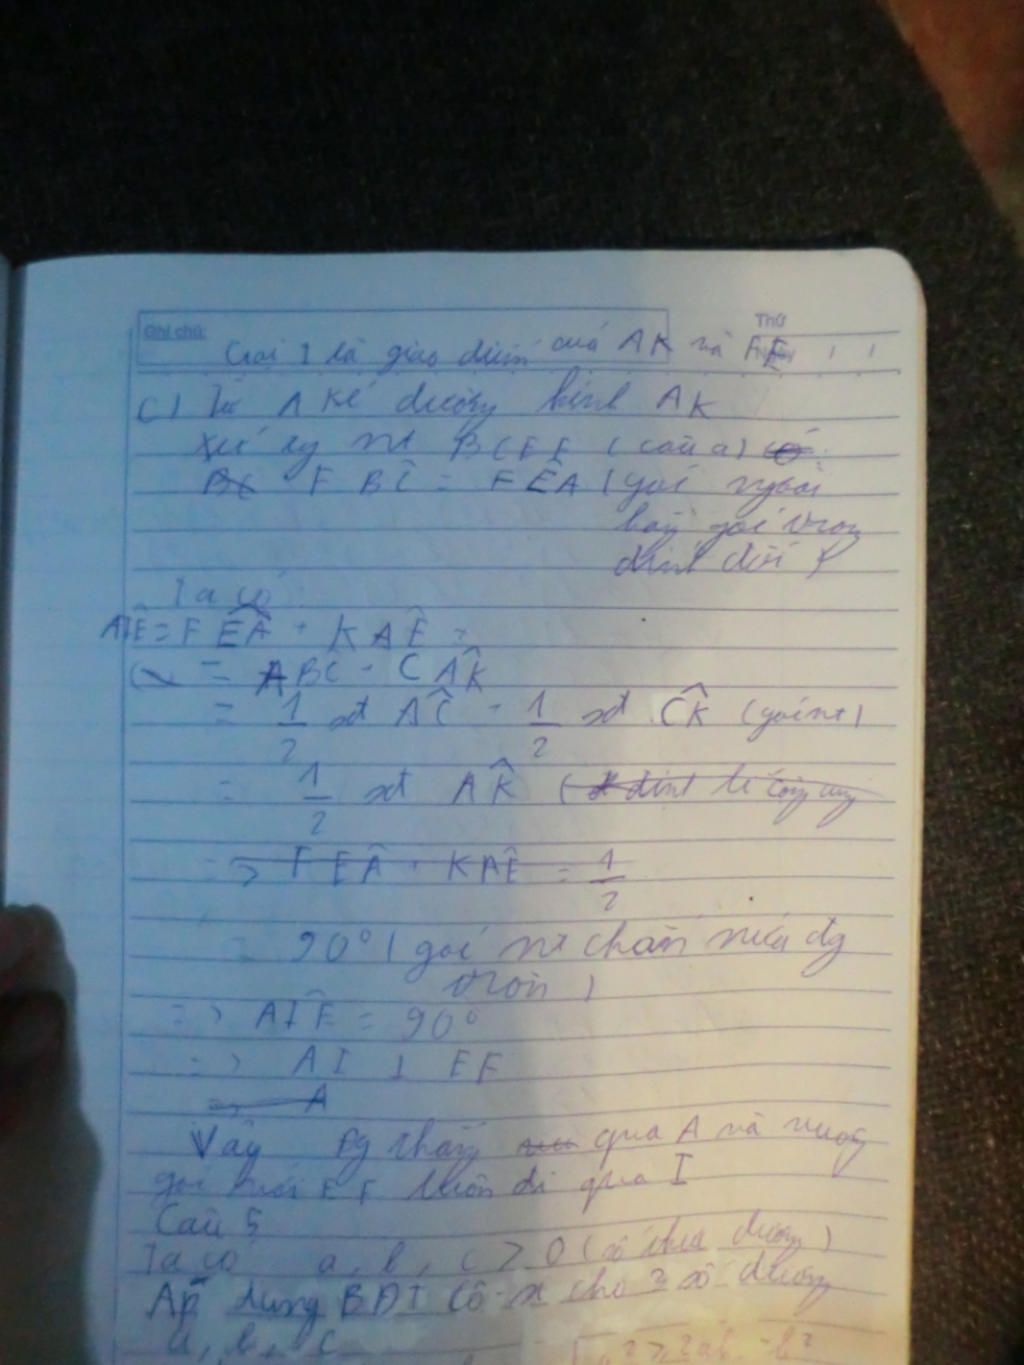 Ghi chú:
Thứ
Gọi I là giao điểm của AK và FE
c) Từ A kẻ đường kính AK
Xét tg nt BCEF (câu a)
FBC = FEA (góc ngoài
bằng góc trong
đỉnh đối)
Ta có
AIE = FEA + KAE
= ABC + CAK
= 1/2 sđ AC + 1/2 sđ CK (góc nt)
= 1/2 sđ AK (định lí cộng cung
=> FEA + KAE = 1/2
= 90° (góc nt chắn nửa đg
tròn)
=> AIE = 90°
=> AI ⊥ EF
A
Vậy đg thẳng qua A và vuông
góc với EF luôn đi qua I
Câu 5
Ta có a, b, c > 0 (số thực dương)
Áp dụng BĐT Cô-si cho 2 số dương
a, b, c